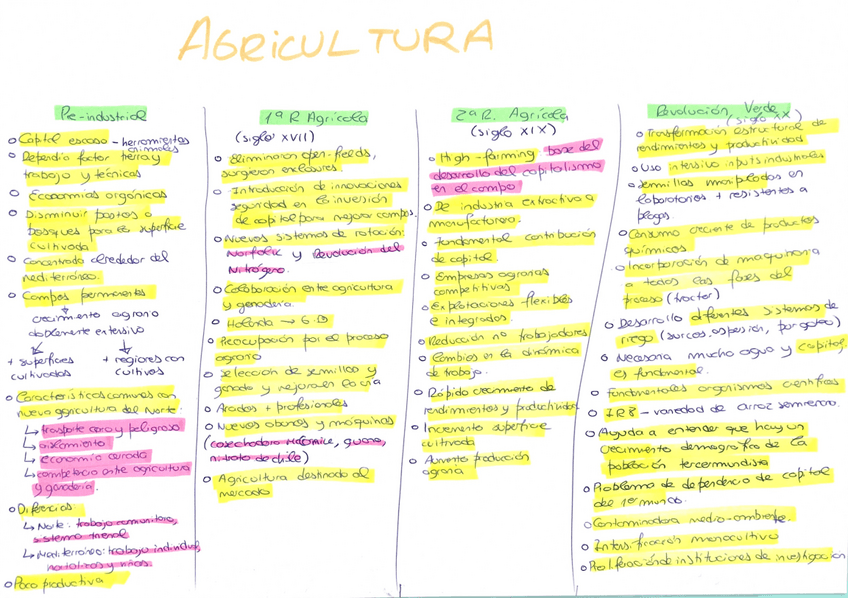 AGRICULTURA
Pre-industrial
o Capital escaso - herramientas
animales
o Dependía factor tierra y
trabajo y técnicas
o Economías orgánicas
o Disminuir pastos o
bosques para la superficie
cultivada
o Concentrado alrededor del
mediterráneo.
o Campos permanentes
crecimiento agrario
doblemente extensivo
+ superficies
cultivadas
+ regiones con
cultivos
o Características comunes con
nueva agricultura del Norte:
↳ trasporte caro y peligroso
↳ aislamiento
↳ economía cerrada
↳ competencia entre agricultura
y ganadería.
o Diferencias:
↳ Norte: trabajo comunitario,
sistema trienal
↳ Mediterráneo: trabajo individual,
hortalizas y viñas.
o Poco productiva
1ª R. Agrícola
(siglo XVII)
o Eliminaron open-fields,
surgieron enclosures.
o Introducción de innovaciones
seguridad en la inversión
de capital para mejorar campos.
o Nuevos sistemas de rotación:
Norfolk y Revolución del
Nitrógeno.
o Colaboración entre agricultura
y ganadería.
o Holanda → G.B
o Preocupación por el proceso
agrario
o Selección de semillas y
ganado y mejora en la cría
o Arados + profesionales
o Nuevos abonos y máquinas
(cosechadora McCormick, guano,
nitrato de chile)
o Agricultura destinada al
mercado
2ª R. Agrícola
(siglo XIX)
o High-farming base del
desarrollo del capitalismo
en el campo
o De industria extractiva a
manufacturera.
o Fundamental contribución
de capital.
o Empresas agrarias
competitivas
o Explotaciones flexibles
e integrados.
o Reducción nº trabajadores
o Cambios en la dinámica
de trabajo.
o Rápido crecimiento de
rendimientos y productividad
o Incremento superficie
cultivada
o Aumento producción
agraria
Revolución Verde
(siglo XX)
o Transformación estructural de
rendimientos y productividad
o Uso intensivo inputs industriales
o Semillas manipuladas en
laboratorios + resistentes a
plagas.
o Consumo creciente de productos
químicos
o Incorporación de maquinaria
a todas las fases del
proceso (tractor)
o Desarrollo diferentes sistemas de
riego (surcos, aspersión, por goteo)
o Necesaria mucha agua y capital
es fundamental.
o Fundamentales organismos científicos
o IR8 - variedad de arroz semienano.
o Ayuda a entender que hay un
crecimiento demográfico de la
población tercermundista
o Problema de dependencia de capital
del 1er mundo.
o Contaminadora medio-ambiente.
o Intensificación monocultivo
o Proliferación de instituciones de investigación